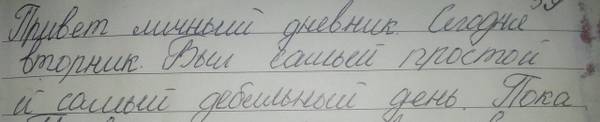 Привет личный дневник. Сегодня
вторник. Был самый простой
и самый дебильный день. Пока